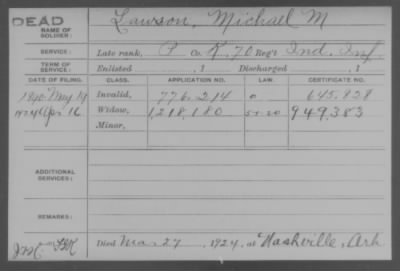 DEAD
NAME OF SOLDIER: Lawson, Michael M
SERVICE: Late rank, P Co. K, 70 Reg't Ind. Inf.
TERM OF SERVICE: Enlisted , 1 Discharged , 1
DATE OF FILING. CLASS. APPLICATION NO. LAW. CERTIFICATE NO.
1890 May 14 Invalid, 776.214 a 645.828
Apr 16 Widow, 1,218,180 949,383
Minor,
ADDITIONAL SERVICES:
REMARKS:
Died Mar 27, 1924, at Nashville, Ark